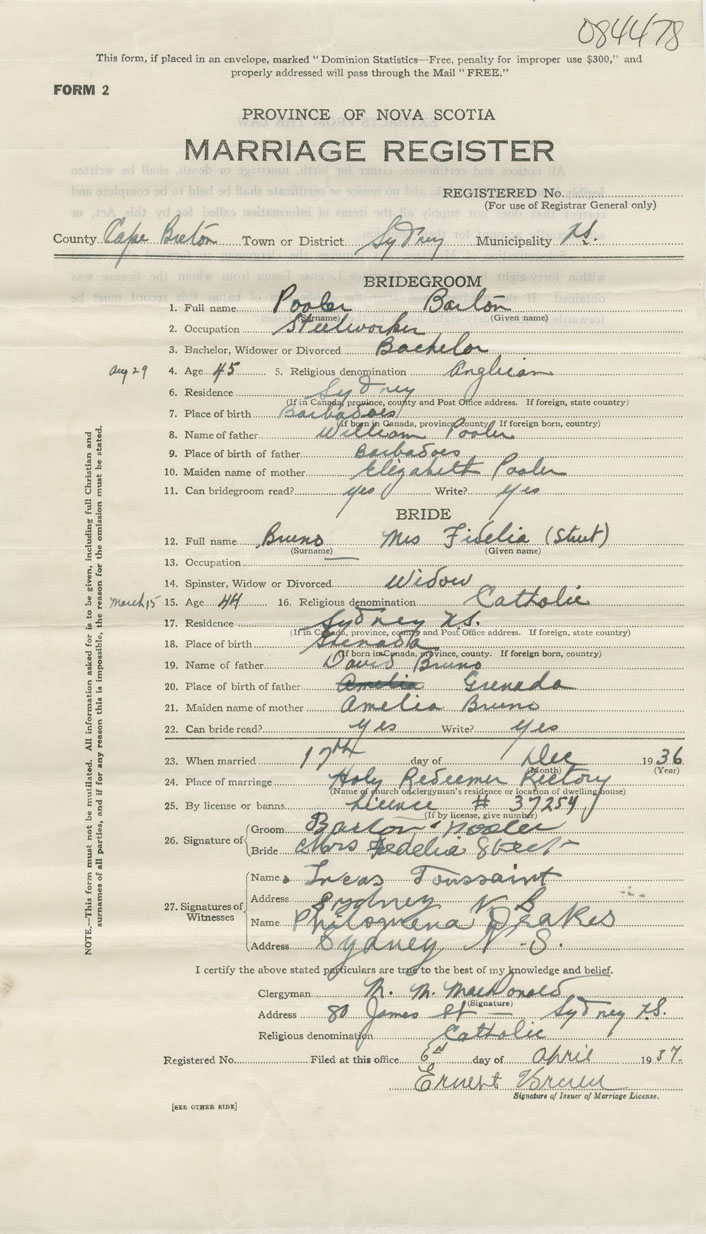 084478
This form, if placed in an envelope, marked "Dominion Statistics—Free, penalty for improper use $300," and
properly addressed will pass through the Mail "FREE."
FORM 2
PROVINCE OF NOVA SCOTIA
MARRIAGE REGISTER
REGISTERED No.
(For use of Registrar General only)
County Cape Breton Town or District Sydney Municipality N.S.
BRIDEGROOM
1. Full name Pooler Barton
(Surname) (Given name)
2. Occupation Steelworker
3. Bachelor, Widower or Divorced Bachelor
Aug 29 4. Age 45 5. Religious denomination Anglican
6. Residence Sydney
(If in Canada, province, county and Post Office address. If foreign, state country)
7. Place of birth Barbadoes
(If born in Canada, province, county. If foreign born, country)
8. Name of father William Pooler
9. Place of birth of father Barbadoes
10. Maiden name of mother Elizabeth Pooler
11. Can bridegroom read? yes Write? yes
BRIDE
12. Full name Bruno Mrs Fidelia (Street)
(Surname) (Given name)
13. Occupation
14. Spinster, Widow or Divorced Widow
March 15 15. Age 44 16. Religious denomination Catholic
17. Residence Sydney N.S.
(If in Canada, province, county and Post Office address. If foreign, state country)
18. Place of birth Grenada
(If born in Canada, province, county. If foreign born, country)
19. Name of father David Bruno
20. Place of birth of father Amelia Grenada
21. Maiden name of mother Amelia Bruno
22. Can bride read? yes Write? yes
23. When married 17th day of Dec 1936
(Month) (Year)
24. Place of marriage Holy Redeemer Rectory
(Name of church or clergyman's residence or location of dwelling house)
25. By license or banns Licence # 37254
(If by license, give number)
26. Signature of Groom Barton Pooler
Bride Mrs Fedelia Street
27. Signatures of Witnesses Name Lucas Toussaint
Address Sydney N S
Name Philomena Drakes
Address Sydney N.S.
I certify the above stated particulars are true to the best of my knowledge and belief.
Clergyman M. M. MacDonald
(Signature)
Address 80 James St — Sydney N.S.
Religious denomination Catholic
Registered No. Filed at this office 6th day of April 1937.
Ernest
Signature of Issuer of Marriage License.
[SEE OTHER SIDE]
NOTE.—This form must not be mutilated. All information asked for is to be given, including full Christian and
surnames of all parties, and if for any reason this is impossible, the reason for the omission must be stated.